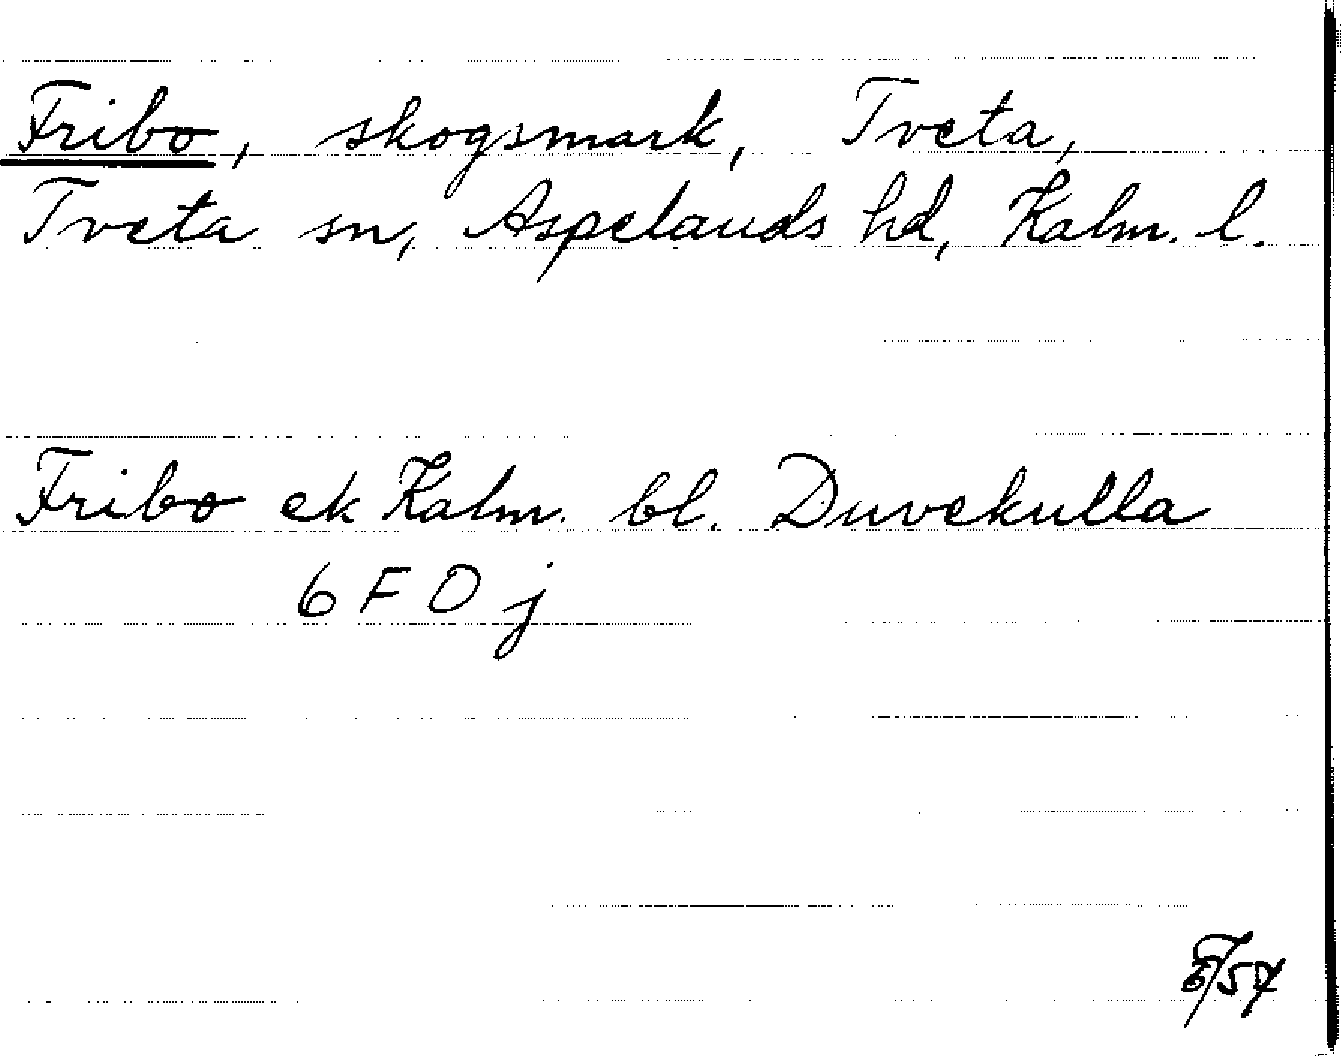 Fribo, skogsmark, Tveta,
Tveta sn, Aspelands hd, Kalm. l.
Fribo ek Kalm. bl. Duvekulla
6 F 0 j